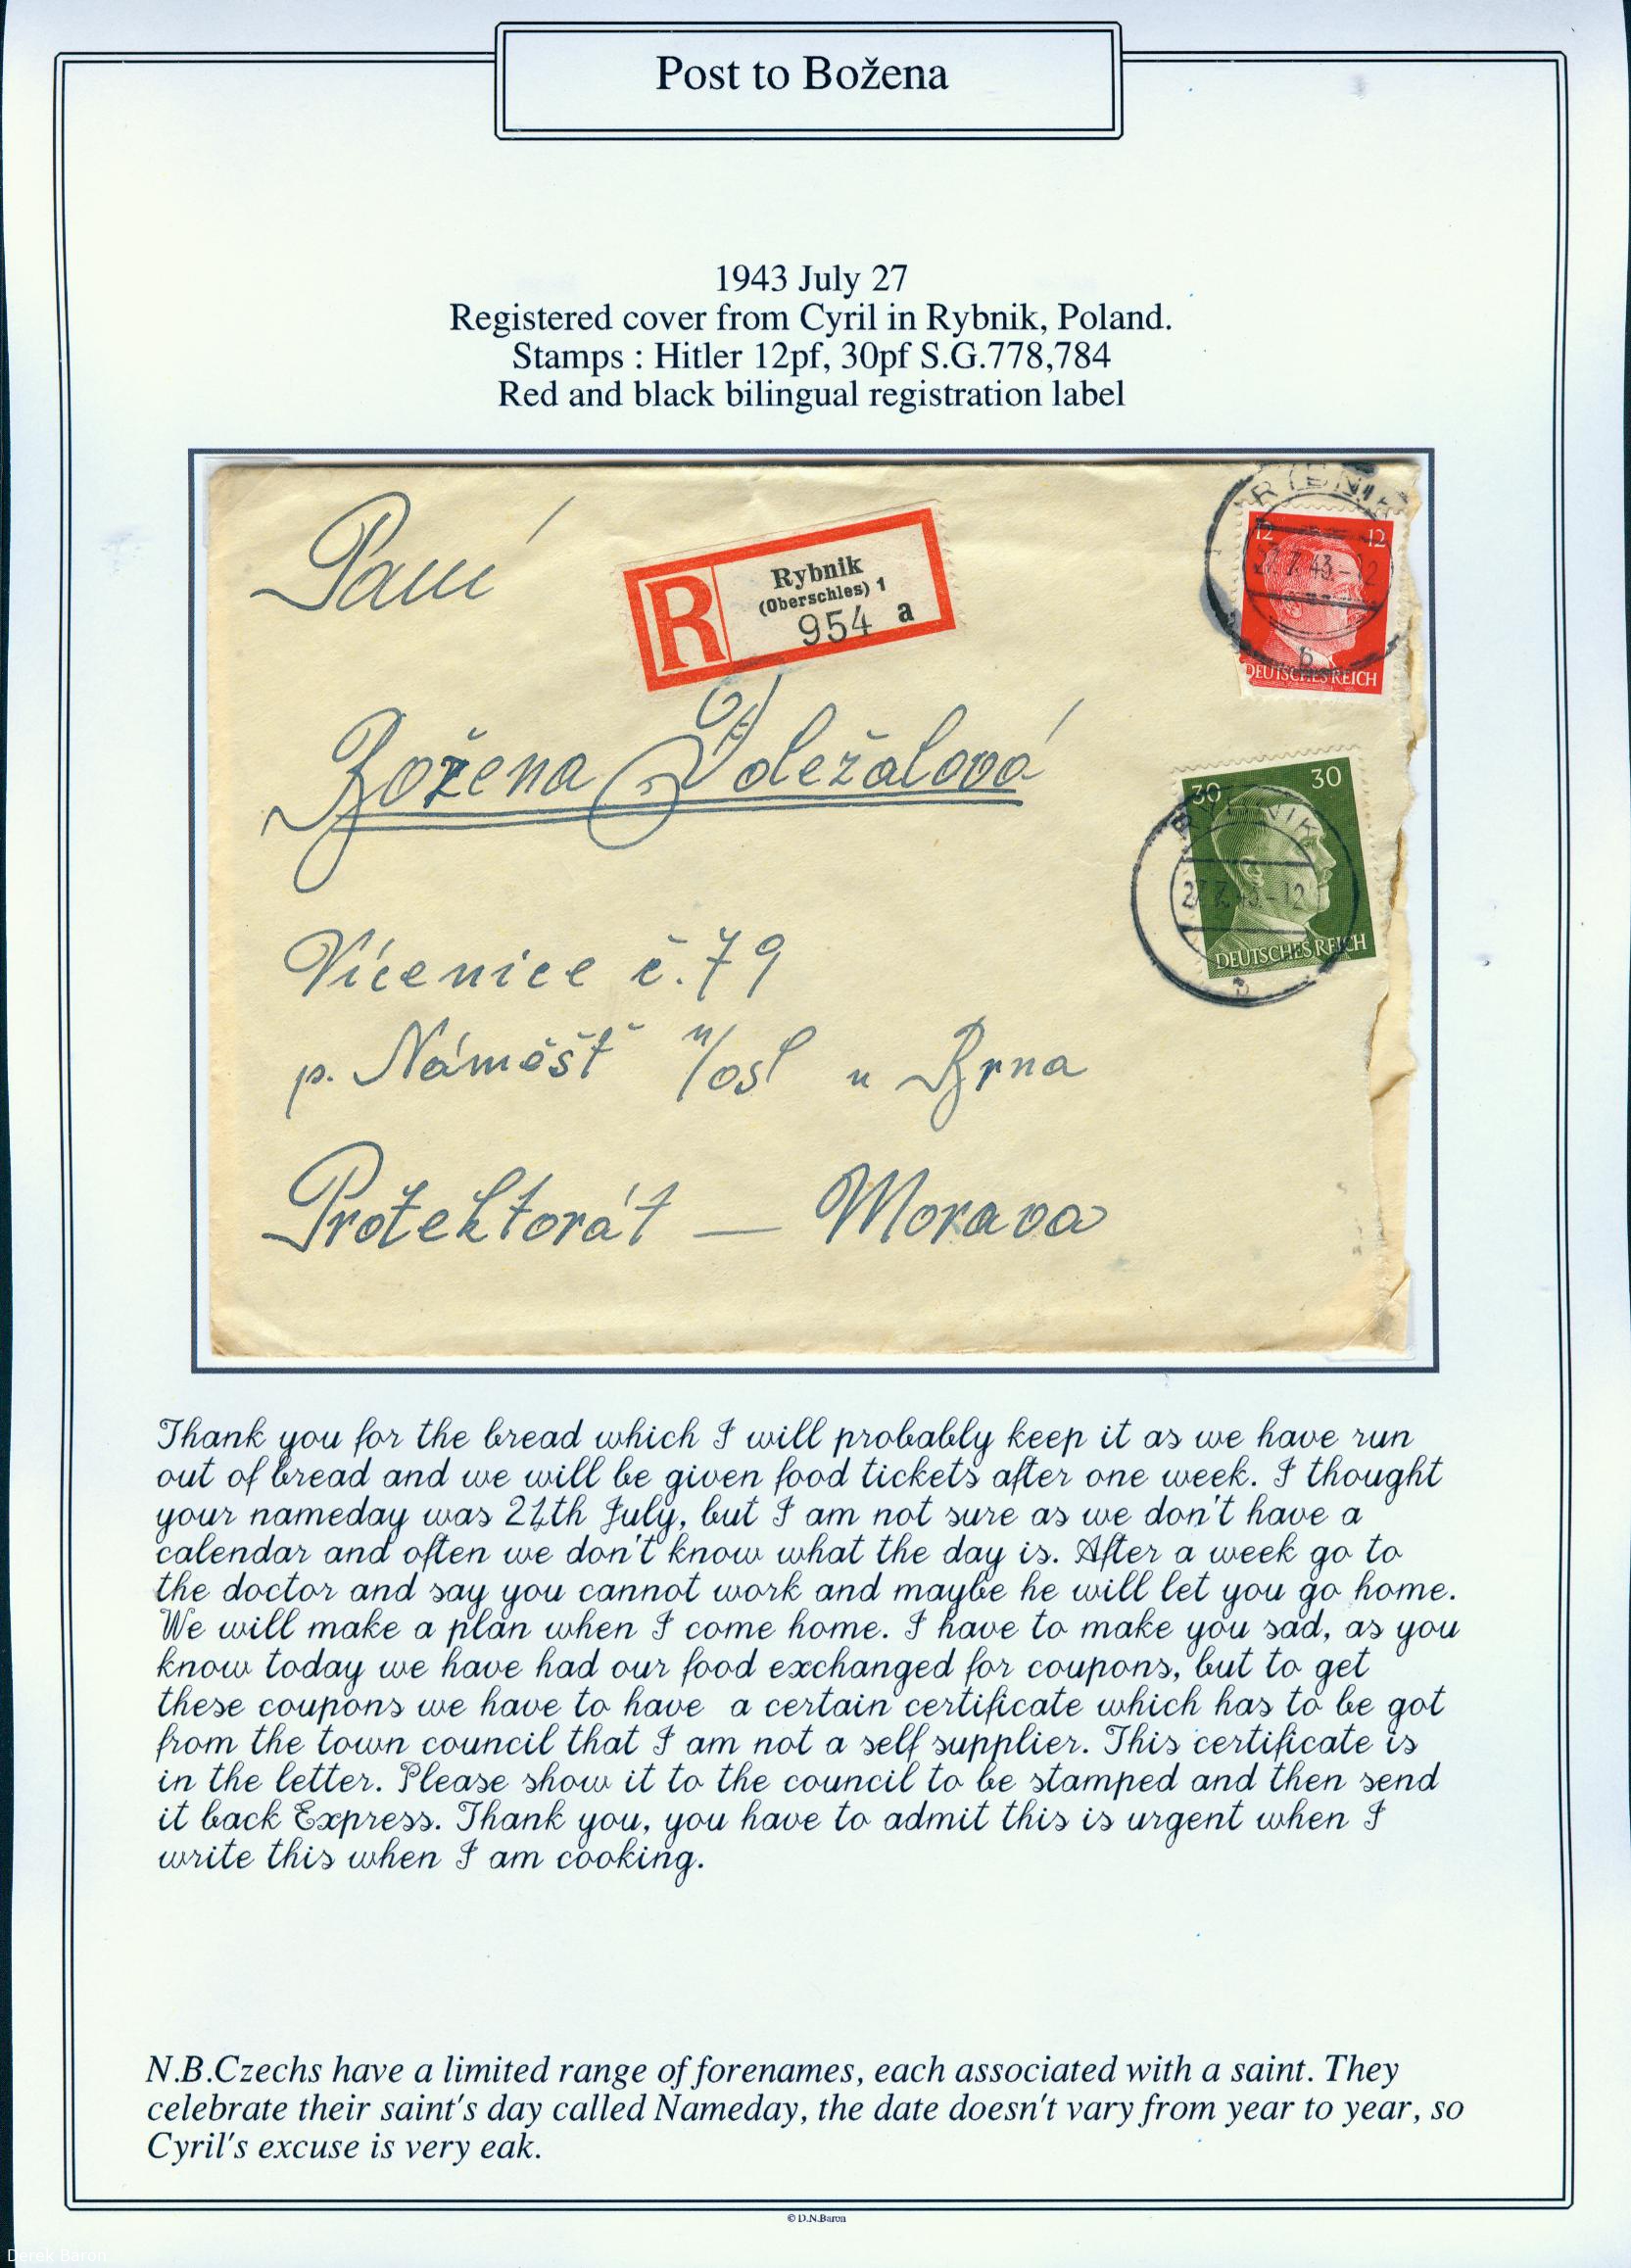 Post to Božena
1943 July 27
Registered cover from Cyril in Rybnik, Poland.
Stamps : Hitler 12pf, 30pf S.G.778,784
Red and black bilingual registration label
Paní
R
Rybnik
(Oberschles) 1
954 a
12 12
27.7.43.-12
b
DEUTSCHES REICH
Božena Doležalová
30 30
RYBNIK
27.7.43.-12
DEUTSCHES REICH
Vícenice č.79
p. Náměšť n/osl u Brna
Protektorát — Morava
Thank you for the bread which I will probably keep it as we have run
out of bread and we will be given food tickets after one week. I thought
your nameday was 21th July, but I am not sure as we don't have a
calendar and often we don't know what the day is. After a week go to
the doctor and say you cannot work and maybe he will let you go home.
We will make a plan when I come home. I have to make you sad, as you
know today we have had our food exchanged for coupons, but to get
these coupons we have to have a certain certificate which has to be got
from the town council that I am not a self supplier. This certificate is
in the letter. Please show it to the council to be stamped and then send
it back Express. Thank you, you have to admit this is urgent when I
write this when I am cooking.
N.B.Czechs have a limited range of forenames, each associated with a saint. They
celebrate their saint's day called Nameday, the date doesn't vary from year to year, so
Cyril's excuse is very eak.
© D.N.Baron
Derek Baron